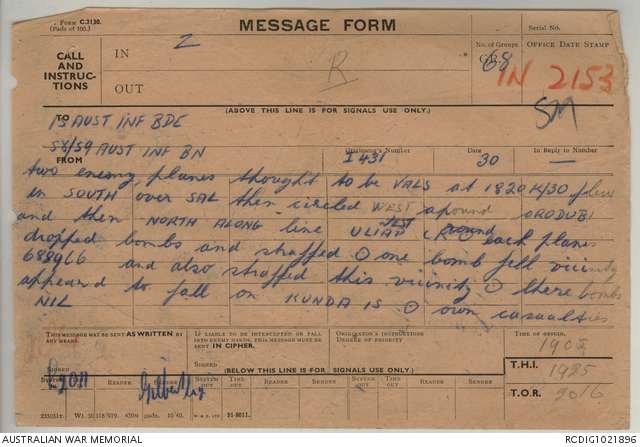 Form C.2136.
(Pads of 100.)
MESSAGE FORM
Serial No.
CALL
AND
INSTRUC-
TIONS
IN Z
OUT
R
No. of Groups
68
OFFICE DATE STAMP
IN 2153
SM
(ABOVE THIS LINE IS FOR SIGNALS USE ONLY.)
TO 15 AUST INF BDE
FROM 58/59 AUST INF BN
Originator's Number
I 431
Date
30
In Reply to Number
—
two enemy planes thought to be VALS at 1820K/30 flew
in SOUTH over SAL then circled WEST around ORODUBI
and then NORTH ALONG line ULIAP CR each plane
dropped bombs and straffed ⊙ one bomb fell vicinity
688966 and also straffed this vicinity ⊙ three bombs
appeared to fall on KUNDA IS ⊙ own casualties
NIL
THIS MESSAGE MAY BE SENT AS WRITTEN BY
ANY MEANS.
IF LIABLE TO BE INTERCEPTED OR FALL
INTO ENEMY HANDS, THIS MESSAGE MUST BE
SENT IN CIPHER.
ORIGINATOR'S INSTRUCTIONS
DEGREE OF PRIORITY
TIME OF ORIGIN.
1905
SIGNED
SIGNED
(BELOW THIS LINE IS FOR SIGNALS USE ONLY.)
T.H.I. 1925
T.O.R. 2016
SYSTEM
READER
SENDER
SYSTEM OUT
TIME OUT
READER
SENDER
SYSTEM OUT
TIME OUT
READER
SENDER
AUSTRALIAN WAR MEMORIAL
RCDIG1021896